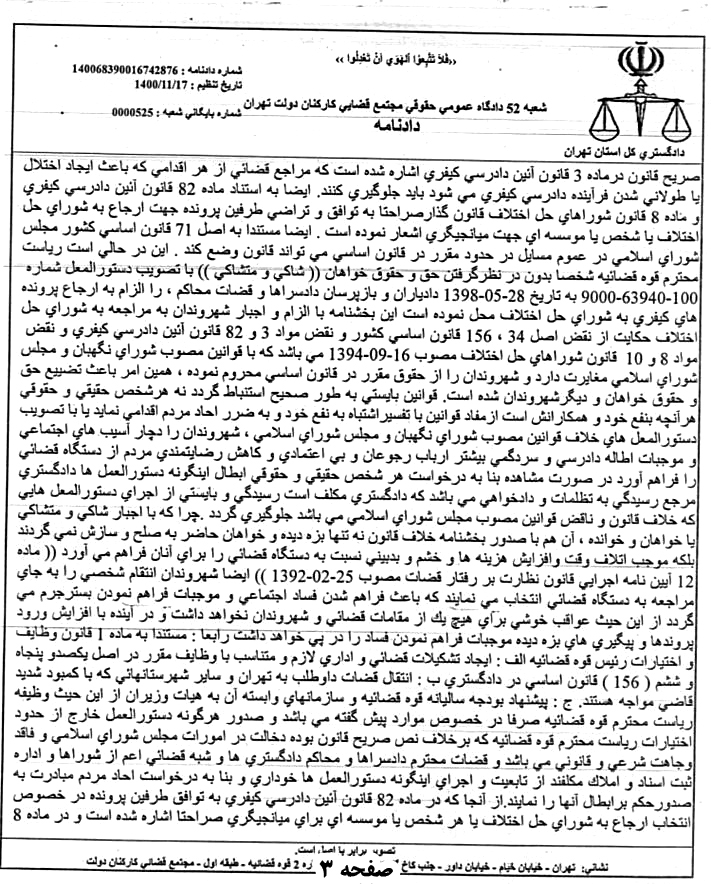 ««فَلاٰ تَتَّبِعُوا اَلْهَوىٰ اَنْ تَعْدِلُوا »»
شماره دادنامه : 140068390016742876
تاریخ تنظیم : 1400/11/17
شماره بایگاني شعبه : 0000525
شعبه 52 دادگاه عمومي حقوقي مجتمع قضایي کارکنان دولت تهران
دادنامه
دادگستري کل استان تهران
صریح قانون درماده 3 قانون آئین دادرسي کیفري اشاره شده است که مراجع قضائي از هر اقدامي که باعث ایجاد اختلال
یا طولاني شدن فرآینده دادرسي کیفري مي شود باید جلوگیري کنند. ایضا به استناد ماده 82 قانون آئین دادرسي کیفري
و ماده 8 قانون شوراهاي حل اختلاف قانون گذارصراحتا به توافق و تراضي طرفین پرونده جهت ارجاع به شوراي حل
اختلاف یا شخص یا موسسه اي جهت میانجیگري اشعار نموده است . ایضا مستندا به اصل 71 قانون اساسي کشور مجلس
شوراي اسلامي در عموم مسایل در حدود مقرر در قانون اساسي مي تواند قانون وضع کند . این در حالي است ریاست
محترم قوه قضائیه شخصا بدون در نظرگرفتن حق و حقوق خواهان (( شاکي و متشاکي )) با تصویب دستورالمعل شماره
9000-63940-100 به تاریخ 28-05-1398 دادیاران و بازپرسان دادسراها و قضات محاکم ، را الزام به ارجاع پرونده
هاي کیفري به شوراي حل اختلاف محل نموده است این بخشنامه با الزام و اجبار شهروندان به مراجعه به شوراي حل
اختلاف حکایت از نقض اصل 34 ، 156 قانون اساسي کشور و نقض مواد 3 و 82 قانون آئین دادرسي کیفري و نقض
مواد 8 و 10 قانون شوراهاي حل اختلاف مصوب 16-09-1394 مي باشد که با قوانین مصوب شوراي نگهبان و مجلس
شوراي اسلامي مغایرت دارد و شهروندان را از حقوق مقرر در قانون اساسي محروم نموده ، همین امر باعث تضییع حق
و حقوق خواهان و دیگرشهروندان شده است. قوانین بایستي به طور صحیح استنباط گردد نه هرشخص حقیقي و حقوقي
هرآنچه بنفع خود و همکارانش است ازمفاد قوانین با تفسیراشتباه به نفع خود و به ضرر احاد مردم اقدامي نماید یا با تصویب
دستورالمعل هاي خلاف قوانین مصوب شوراي نگهبان و مجلس شوراي اسلامي ، شهروندان را دچار آسیب هاي اجتماعي
و موجبات اطاله دادرسي و سردگمي بیشتر ارباب رجوعان و بي اعتمادي و کاهش رضایتمندي مردم از دستگاه قضائي
را فراهم آورد در صورت مشاهده بنا به درخواست هر شخص حقیقي و حقوقي ابطال اینگونه دستورالعمل ها دادگستري
مرجع رسیدگي به تظلمات و دادخواهي مي باشد که دادگستري مکلف است رسیدگي و بایستي از اجراي دستورالمعل هایي
که خلاف قانون و ناقض قوانین مصوب مجلس شوراي اسلامي مي باشد جلوگیري گردد .چرا که با اجبار شاکي و متشاکي
یا خواهان و خوانده ، آن هم با صدور بخشنامه خلاف قانون نه تنها بزه دیده و خواهان حاضر به صلح و سازش نمي گردند
بلکه موجب اتلاف وقت وافزایش هزینه ها و خشم و بدبیني نسبت به دستگاه قضائي را براي آنان فراهم مي آورد (( ماده
12 آیین نامه اجرایي قانون نظارت بر رفتار قضات مصوب 25-02-1392 )) ایضا شهروندان انتقام شخصي را به جاي
مراجعه به دستگاه قضائي انتخاب مي نمایند که باعث فراهم شدن فساد اجتماعي و موجبات فراهم نمودن بسترجرم مي
گردد از این حیث عواقب خوشي براي هیچ یك از مقامات قضائي و شهروندان نخواهد داشت و در آینده با افزایش ورود
پروندها و پیگیري هاي بزه دیده موجبات فراهم نمودن فساد را در پي خواهد داشت رابعا : مستندا به ماده 1 قانون وظایف
و اختیارات رئیس قوه قضائیه الف : ایجاد تشکیلات قضائي و اداري لازم و متناسب با وظایف مقرر در اصل یکصدو پنجاه
و ششم ( 156 ) قانون اساسي در دادگستري ب : انتقال قضات داوطلب به تهران و سایر شهرستانهائي که با کمبود شدید
قاضي مواجه هستند. ج : پیشنهاد بودجه سالیانه قوه قضائیه و سازمانهاي وابسته آن به هیات وزیران از این حیث وظیفه
ریاست محترم قوه قضائیه صرفا در خصوص موارد پیش گفته مي باشد و صدور هرگونه دستورالعمل خارج از حدود
اختیارات ریاست محترم قوه قضائیه که برخلاف نص صریح قانون بوده دخالت در امورات مجلس شوراي اسلامي و فاقد
وجاهت شرعي و قانوني مي باشد و قضات محترم دادسراها و محاکم دادگستري ها و شبه قضائي اعم از شوراها و اداره
ثبت اسناد و املاك مکلفند از تابعیت و اجراي اینگونه دستورالعمل ها خوداري و بنا به درخواست احاد مردم مبادرت به
صدورحکم برابطال آنها را نمایند.از آنجا که در ماده 82 قانون آئین دادرسي کیفري به توافق طرفین پرونده در خصوص
انتخاب ارجاع به شوراي حل اختلاف یا هر شخص یا موسسه اي براي میانجیگري صراحتا اشاره شده است و در ماده 8
تصویر برابر با اصل است.
نشاني: تهران - خیابان خیام - خیابان داور - جنب کاخ صفحه ۳ ره 2 قوه قضائیه - طبقه اول - مجتمع قضائي کارکنان دولت